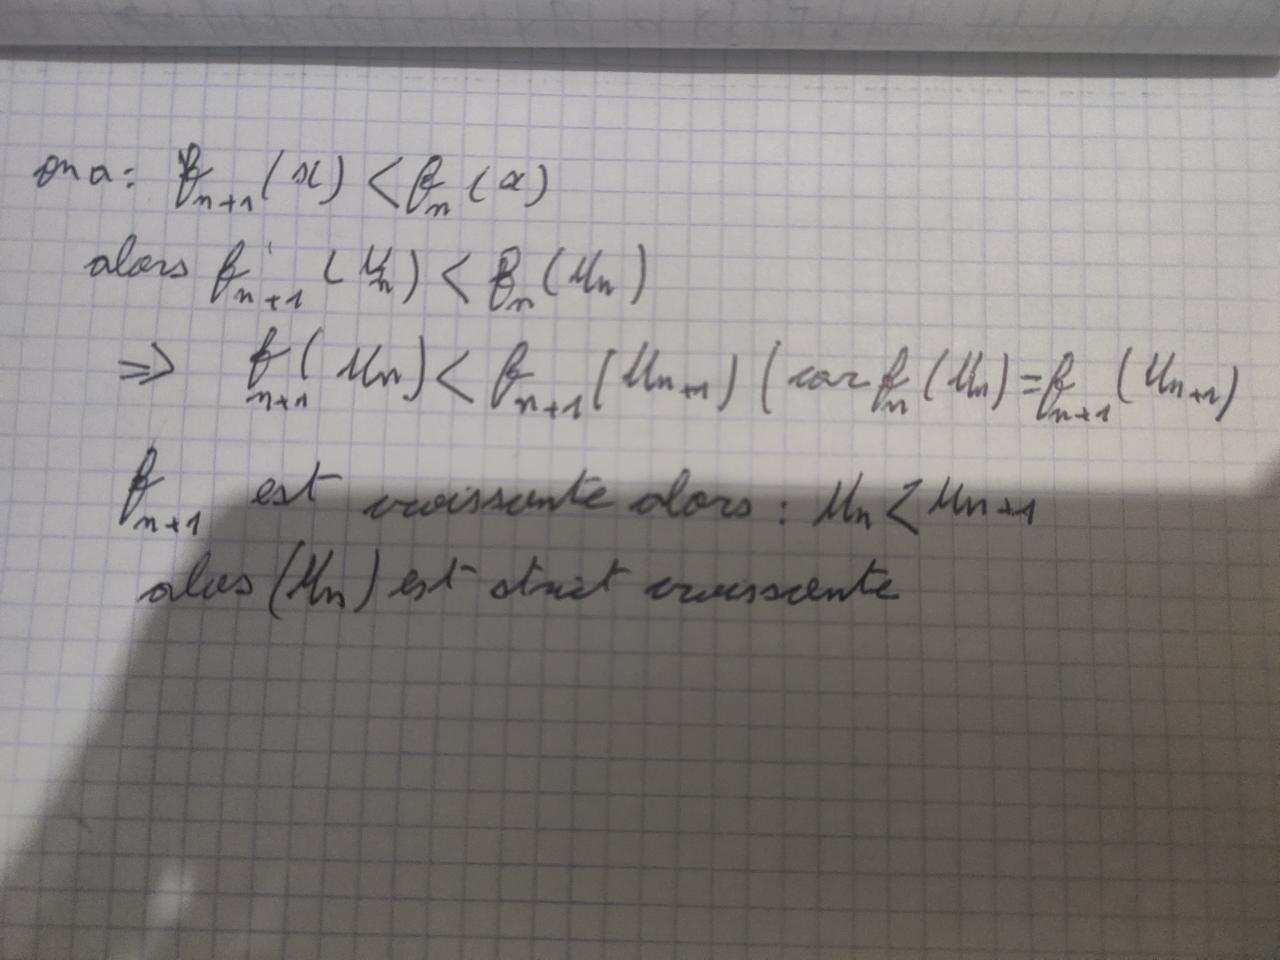 on a : f_{n+1}(x) < f_n(x)
alors f_{n+1}(u_n) < f_n(u_n)
⇒ f_{n+1}(u_n) < f_{n+1}(u_{n+1}) (car f_n(u_n) = f_{n+1}(u_{n+1})
f_{n+1} est croissante alors : u_n < u_{n+1}
alors (u_n) est strict croissante